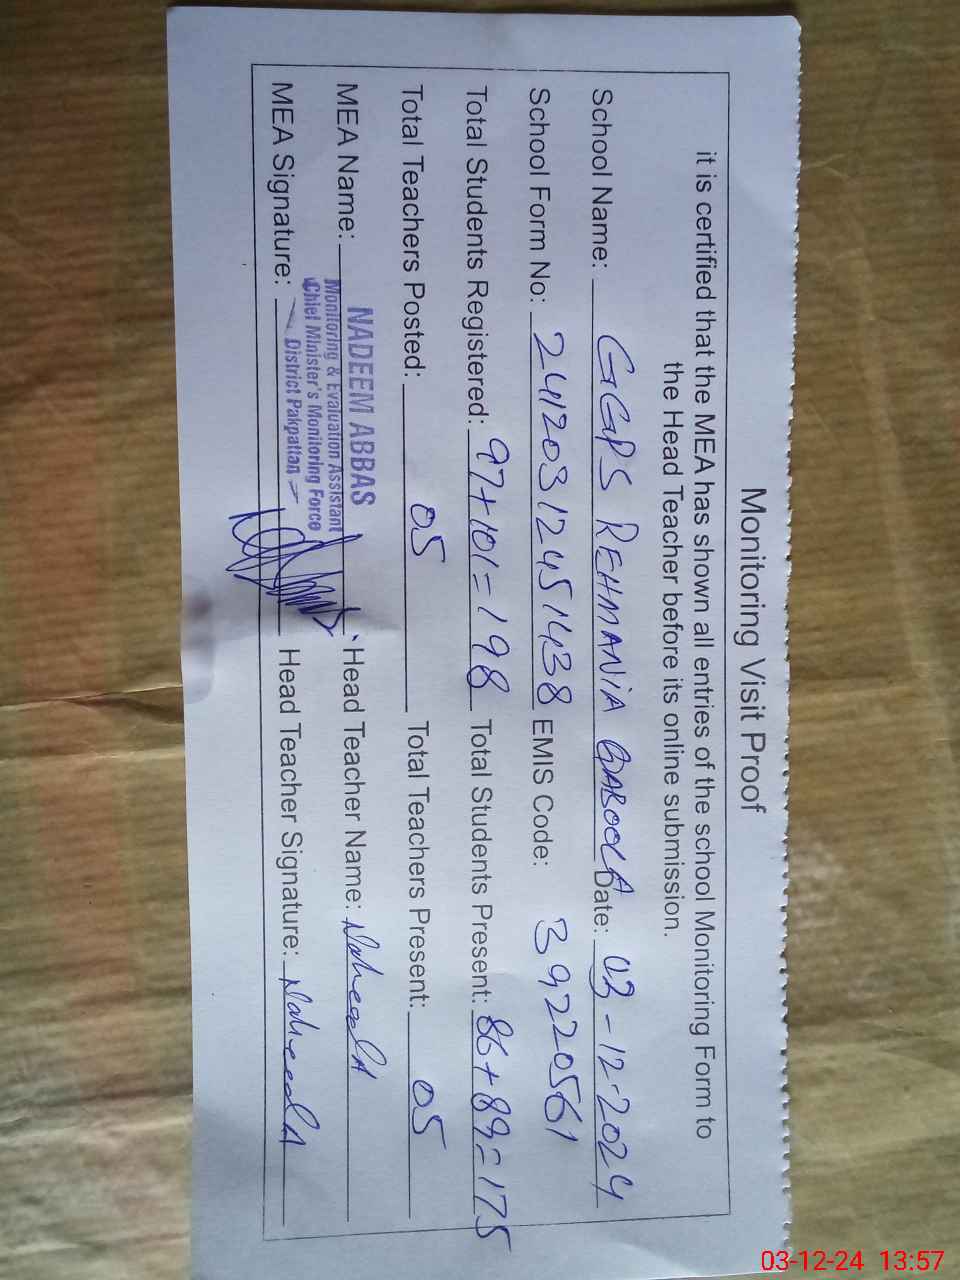 Monitoring Visit Proof
it is certified that the MEA has shown all entries of the school Monitoring Form to
the Head Teacher before its online submission.
School Name: GGPS REHMANIA GABOOLA Date: 03-12-2024
School Form No: 24120312451438 EMIS Code: 39220561
Total Students Registered: 97+101=198 Total Students Present: 86+89=175
Total Teachers Posted: 05 Total Teachers Present: 05
MEA Name: NADEEM ABBAS Head Teacher Name: NaheedA
Monitoring & Evaluation Assistant
Chief Minister's Monitoring Force
District Pakpattan
MEA Signature: Head Teacher Signature: NaheedA
03-12-24 13:57